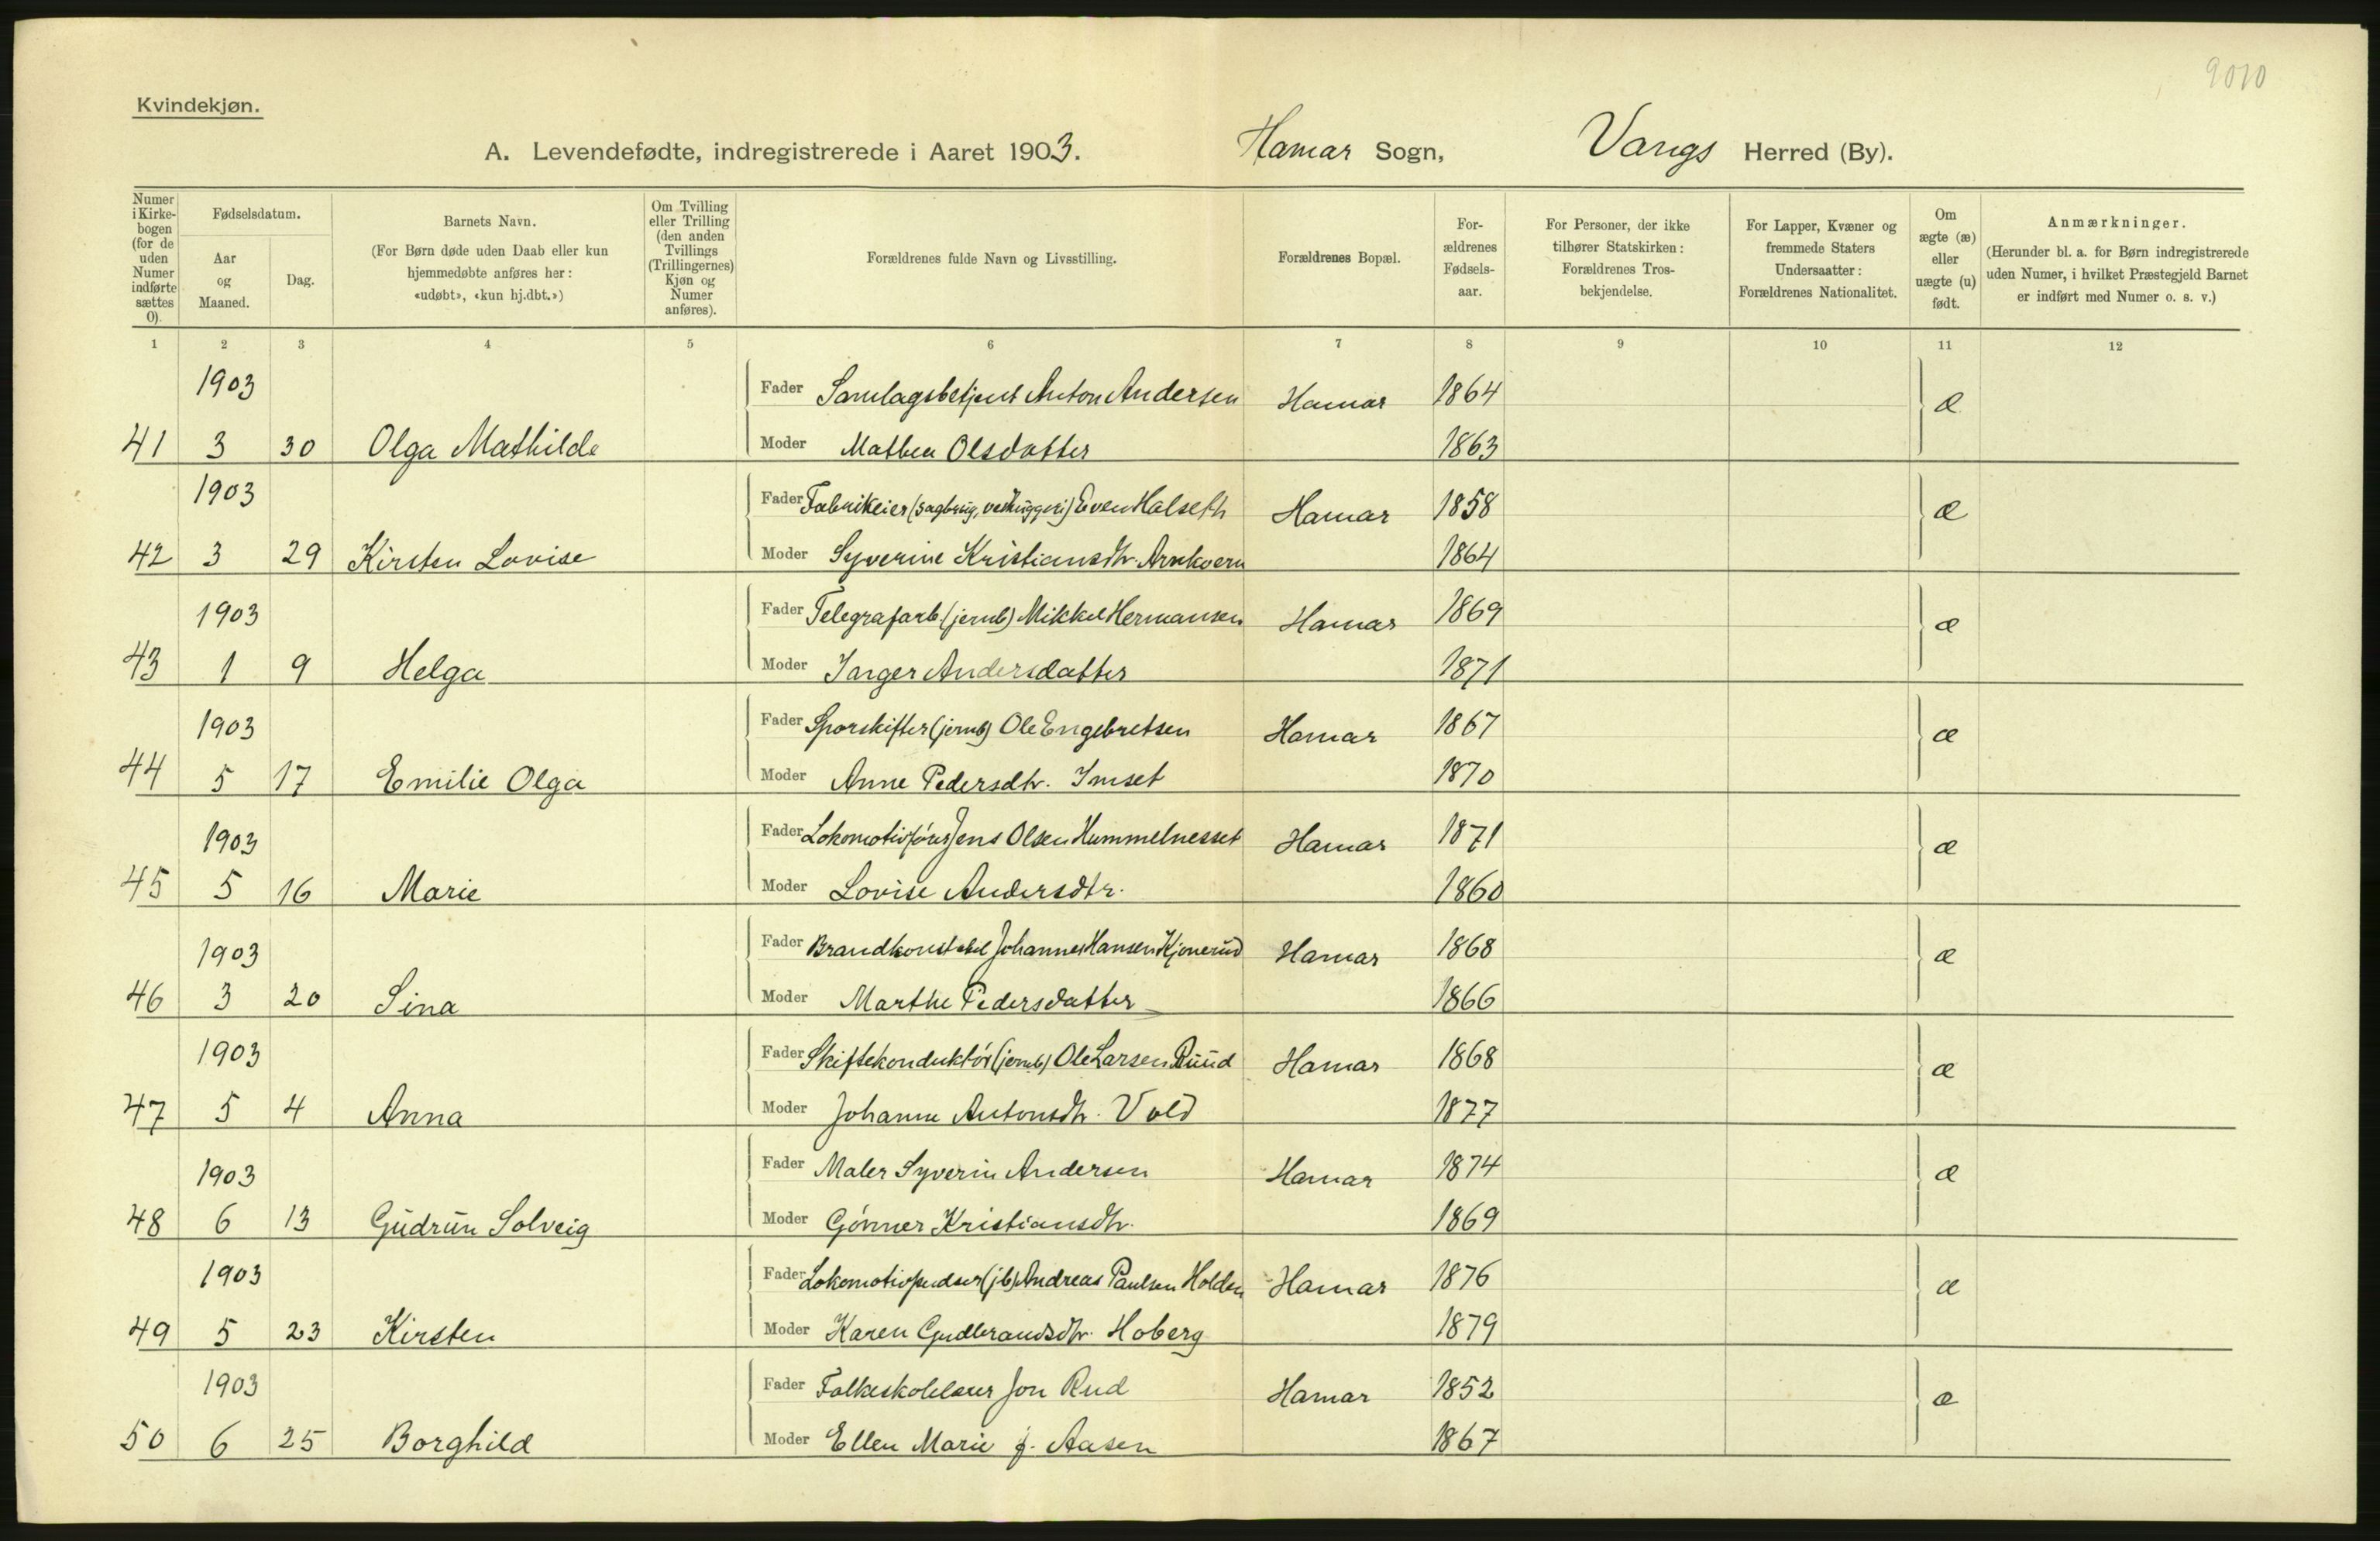 9010
Kvindekjøn.
A. Levendefødte, indregistrerede i Aaret 1903. Hamar Sogn, Vangs Herred (By).
Numer i Kirkebogen (for de uden Numer indførte sættes 0).
Fødselsdatum.
Aar og Maaned.
Dag.
Barnets Navn.
(For Børn døde uden Daab eller kun
hjemmedøbte anføres her:
«udøbt», «kun hj.dbt.»)
Om Tvilling
eller Trilling
(den anden
Tvillings
(Trillingernes)
Kjøn og
Numer
anføres).
Forældrenes fulde Navn og Livsstilling.
Forældrenes Bopæl.
For-
ældrenes
Fødsels-
aar.
For Personer, der ikke
tilhører Statskirken:
Forældrenes Tros-
bekjendelse.
For Lapper, Kvæner og
fremmede Staters
Undersaatter:
Forældrenes Nationalitet.
Om
ægte (æ)
eller
uægte (u)
født.
Anmærkninger.
(Herunder bl. a. for Børn indregistrerede
uden Numer, i hvilket Præstegjeld Barnet
er indført med Numer o. s. v.)
1 2 3 4 5 6 7 8 9 10 11 12
1903 Fader Samlagsbetjent Anton Andersen Hamar 1864 æ
41 3 30 Olga Mathilde Moder Mathea Olsdatter 1863
1903 Fader Fabrikeier (sagbrug, Even Halseth Hamar 1858 æ
42 3 29 Kirsten Lovise Moder Syverine Kristiansdtr. Arnkværn 1864
1903 Fader Telegrafarb. (jernb) Mikkel Hermansen Hamar 1869 æ
43 1 9 Helga Moder Inger Andersdatter 1871
1903 Fader Sporskifter (jernb) Ole Engebretsen Hamar 1867 æ
44 5 17 Emilie Olga Moder Anne Pedersdtr. Imset 1870
1903 Fader Lokomotivfører Jens Olsen Hummelnesset Hamar 1871 æ
45 5 16 Marie Moder Lovise Andersdtr. 1860
1903 Fader Brandkonstabel Johannes Hansen Kjonerud Hamar 1868 æ
46 3 20 Sina Moder Marthe Pedersdatter 1866
1903 Fader Skiftekonduktør (jernb) Ole Larsen Ruud Hamar 1868 æ
47 5 4 Anna Moder Johanne Antonsdtr. Vold 1877
1903 Fader Maler Syverin Andersen Hamar 1874 æ
48 6 13 Gudrun Solveig Moder Gønner Kristiansdtr. 1869
1903 Fader Lokomotivpudser (jb) Andreas Paulsen Holden Hamar 1876 æ
49 5 23 Kirsten Moder Karen Gudbrandsdtr. Hoberg 1879
1903 Fader Folkeskolelærer Jon Rud Hamar 1852 æ
50 6 25 Borghild Moder Ellen Marie f. Aasen 1867